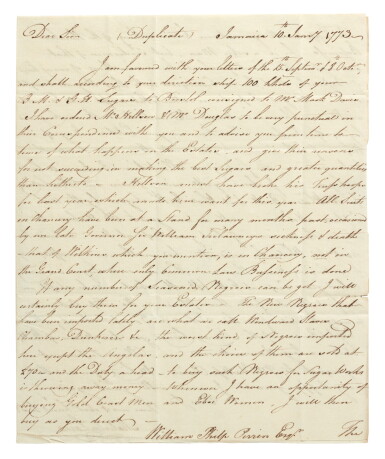 Dear Sir (Duplicate) Jamaica 10th Janry 1773
I am favored with your letters of the 12 Septemr & 8 Octr
and shall according to your direction ship 100 hhds of your
Sugars to Bristol consigned to Mr Mark Davis
I have ordered Mr & Mr Douglas to be very punctual in
their Correspondence with you and to advise you from time to
time of what happens in the Estate, and give their reasons
for not succeeding in making the best Sugars and greater quantities
than hitherto
for last year which made some want for this year All Suits
in Chancery have been at a Stand for many months past, occasioned
by our late Governor Sir William Trelawneys sickness & death
that of Wilkins which you mention, is in Chancery, not in
the Grand Court, where only Common Law Business is done
If any number of Seasoned Negroes can be got I will
certainly buy them for your Estate The New Negroes that
have been imported lately are what is call Windward Slaves
Chambas, the worst kind of Negroes imported
here except the Angolas and the choice of them are sold at
£70 and the Duty a head to buy such Negroes for Sugar Works
is throwing away money whenever I have an oppertunity of
buying Gold Coast Men and Ebo Women I will then
buy as you direct
William Philp Perrin Esqr The